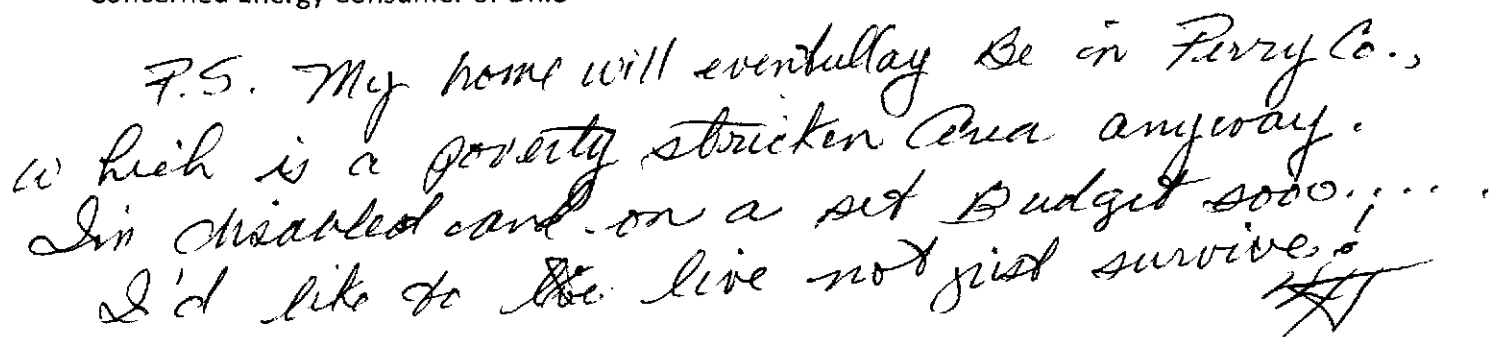 Concerned Energy Consumer of Ohio
P.S. My home will eventullay Be in Perry Co.,
which is a poverty stricken Area anyway.
I'm disabled and on a set Budget sooo.....
I'd like to live not just survive!